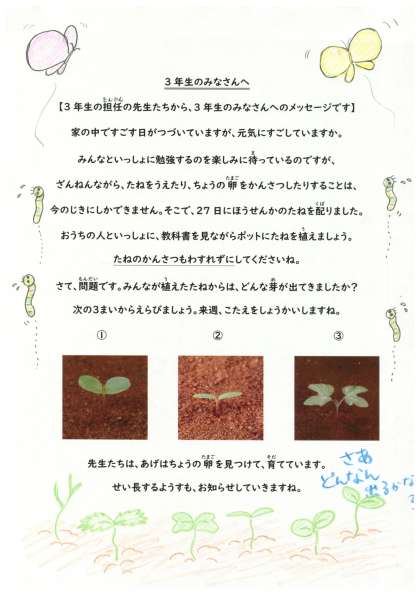 ３年生のみなさんへ
たんにん
【３年生の担任の先生たちから、３年生のみなさんへのメッセージです】
家の中ですごす日がつづいていますが、元気にすごしていますか。
ま
みんなといっしょに勉強するのを楽しみに待っているのですが、
たまご
ざんねんながら、たねをうえたり、ちょうの卵をかんさつしたりすることは、
くば
今のじきにしかできません。そこで、２７日にほうせんかのたねを配りました。
う
おうちの人といっしょに、教科書を見ながらポットにたねを植えましょう。
たねのかんさつもわすれずにしてくださいね。
もんだい う め
さて、問題です。みんなが植えたたねからは、どんな芽が出てきましたか？
次の３まいからえらびましょう。来週、こたえをしょうかいしますね。
① ② ③
たまご そだ
先生たちは、あげはちょうの卵を見つけて、育てています。
せい長するようすも、お知らせしていきますね。
さあ
どんなん
出るかな
？